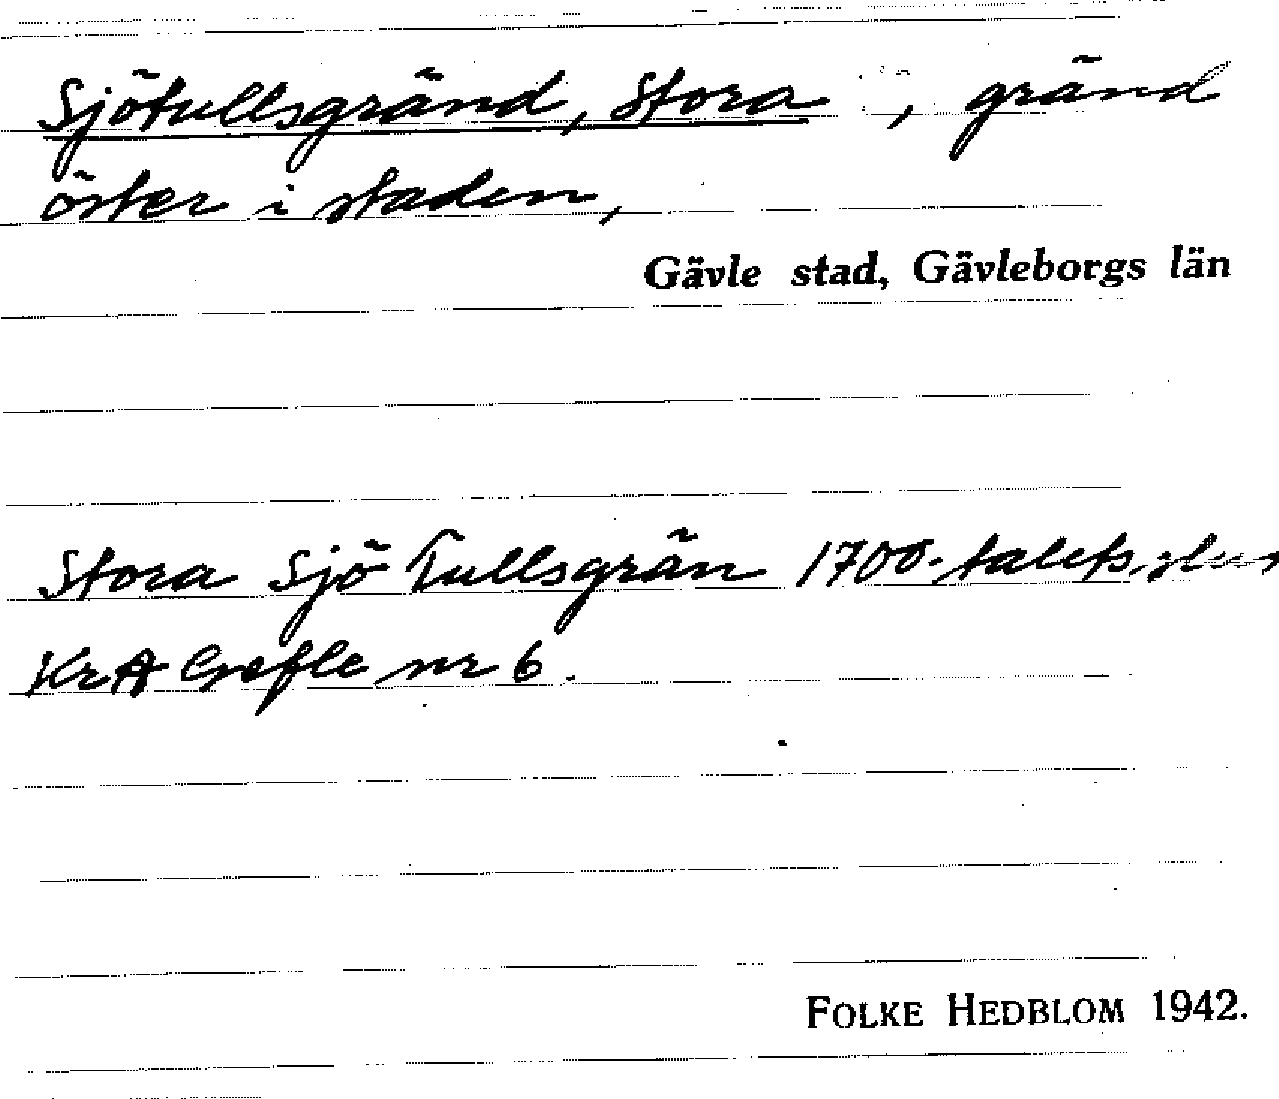 Sjötullsgränd, Stora , gränd
öster i staden,
Gävle stad, Gävleborgs län
Stora Sjö Tullsgrän 1700-talets slut
KrA Gefle nr 6.
FOLKE HEDBLOM 1942.